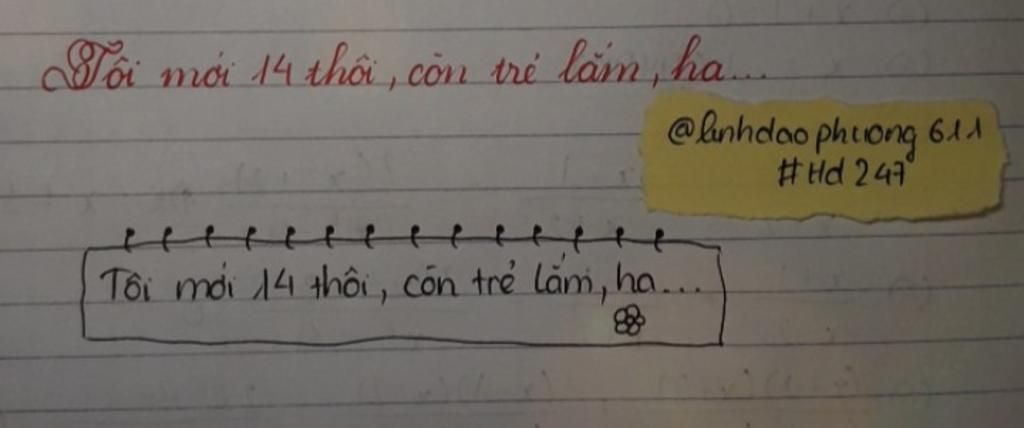 Tôi mới 14 thôi, còn trẻ lắm, ha...
@linhdaophuong611
#Hd247
Tôi mới 14 thôi, còn trẻ lắm, ha...